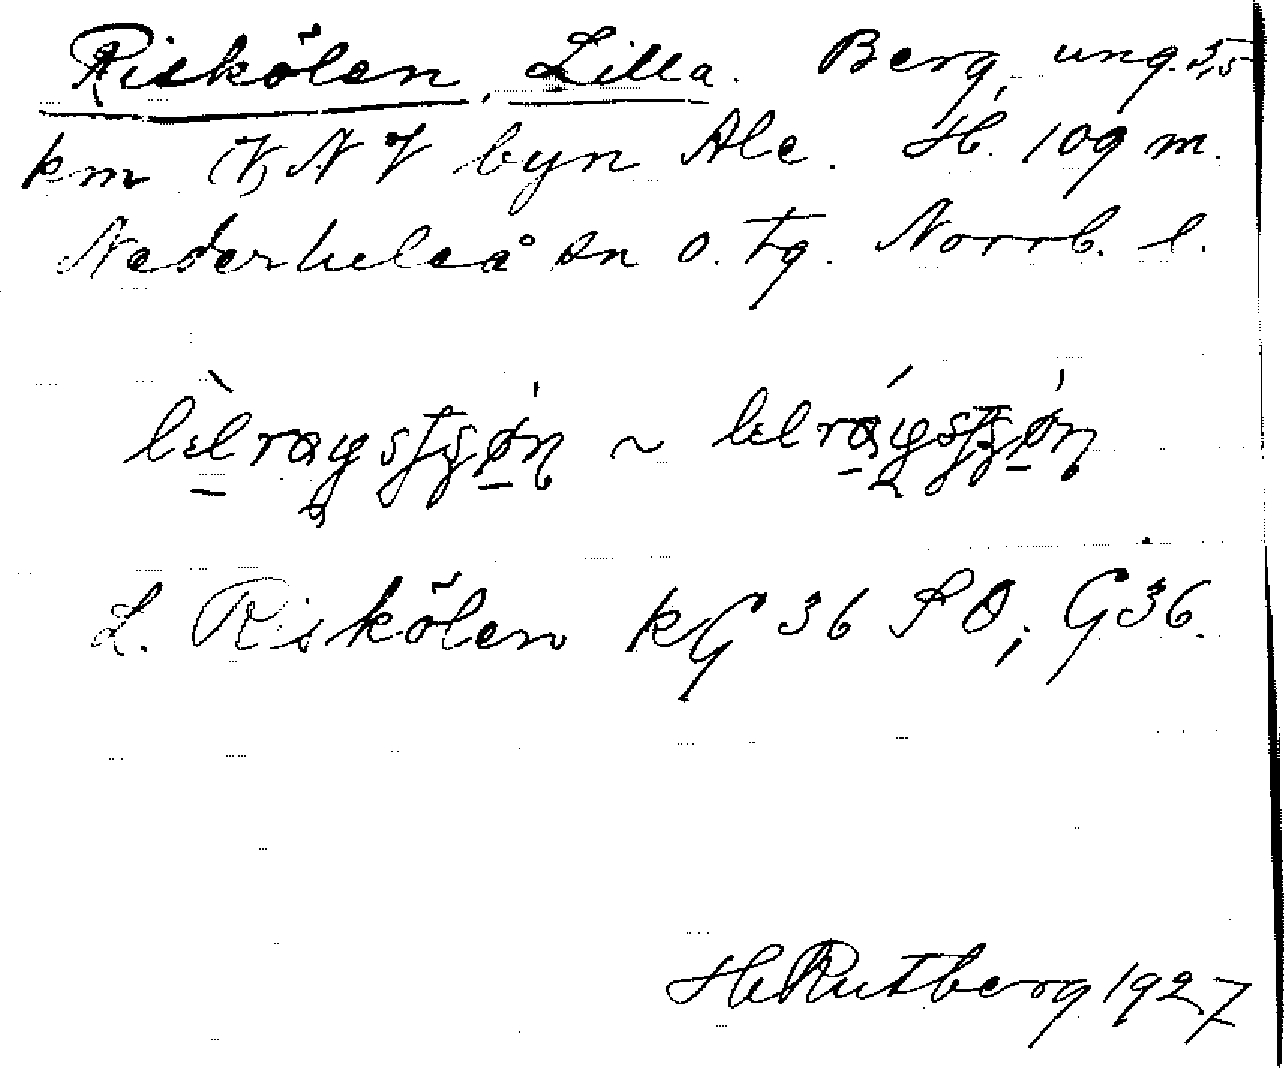 Riskölen, Lilla. Berg, ung. 3,5
km VNV byn Ale. H. 109 m.
Nederluleå sn o. tg. Norrb. l.
L. Riskölen kG 36 SO; G 36.
H Rutberg 1927